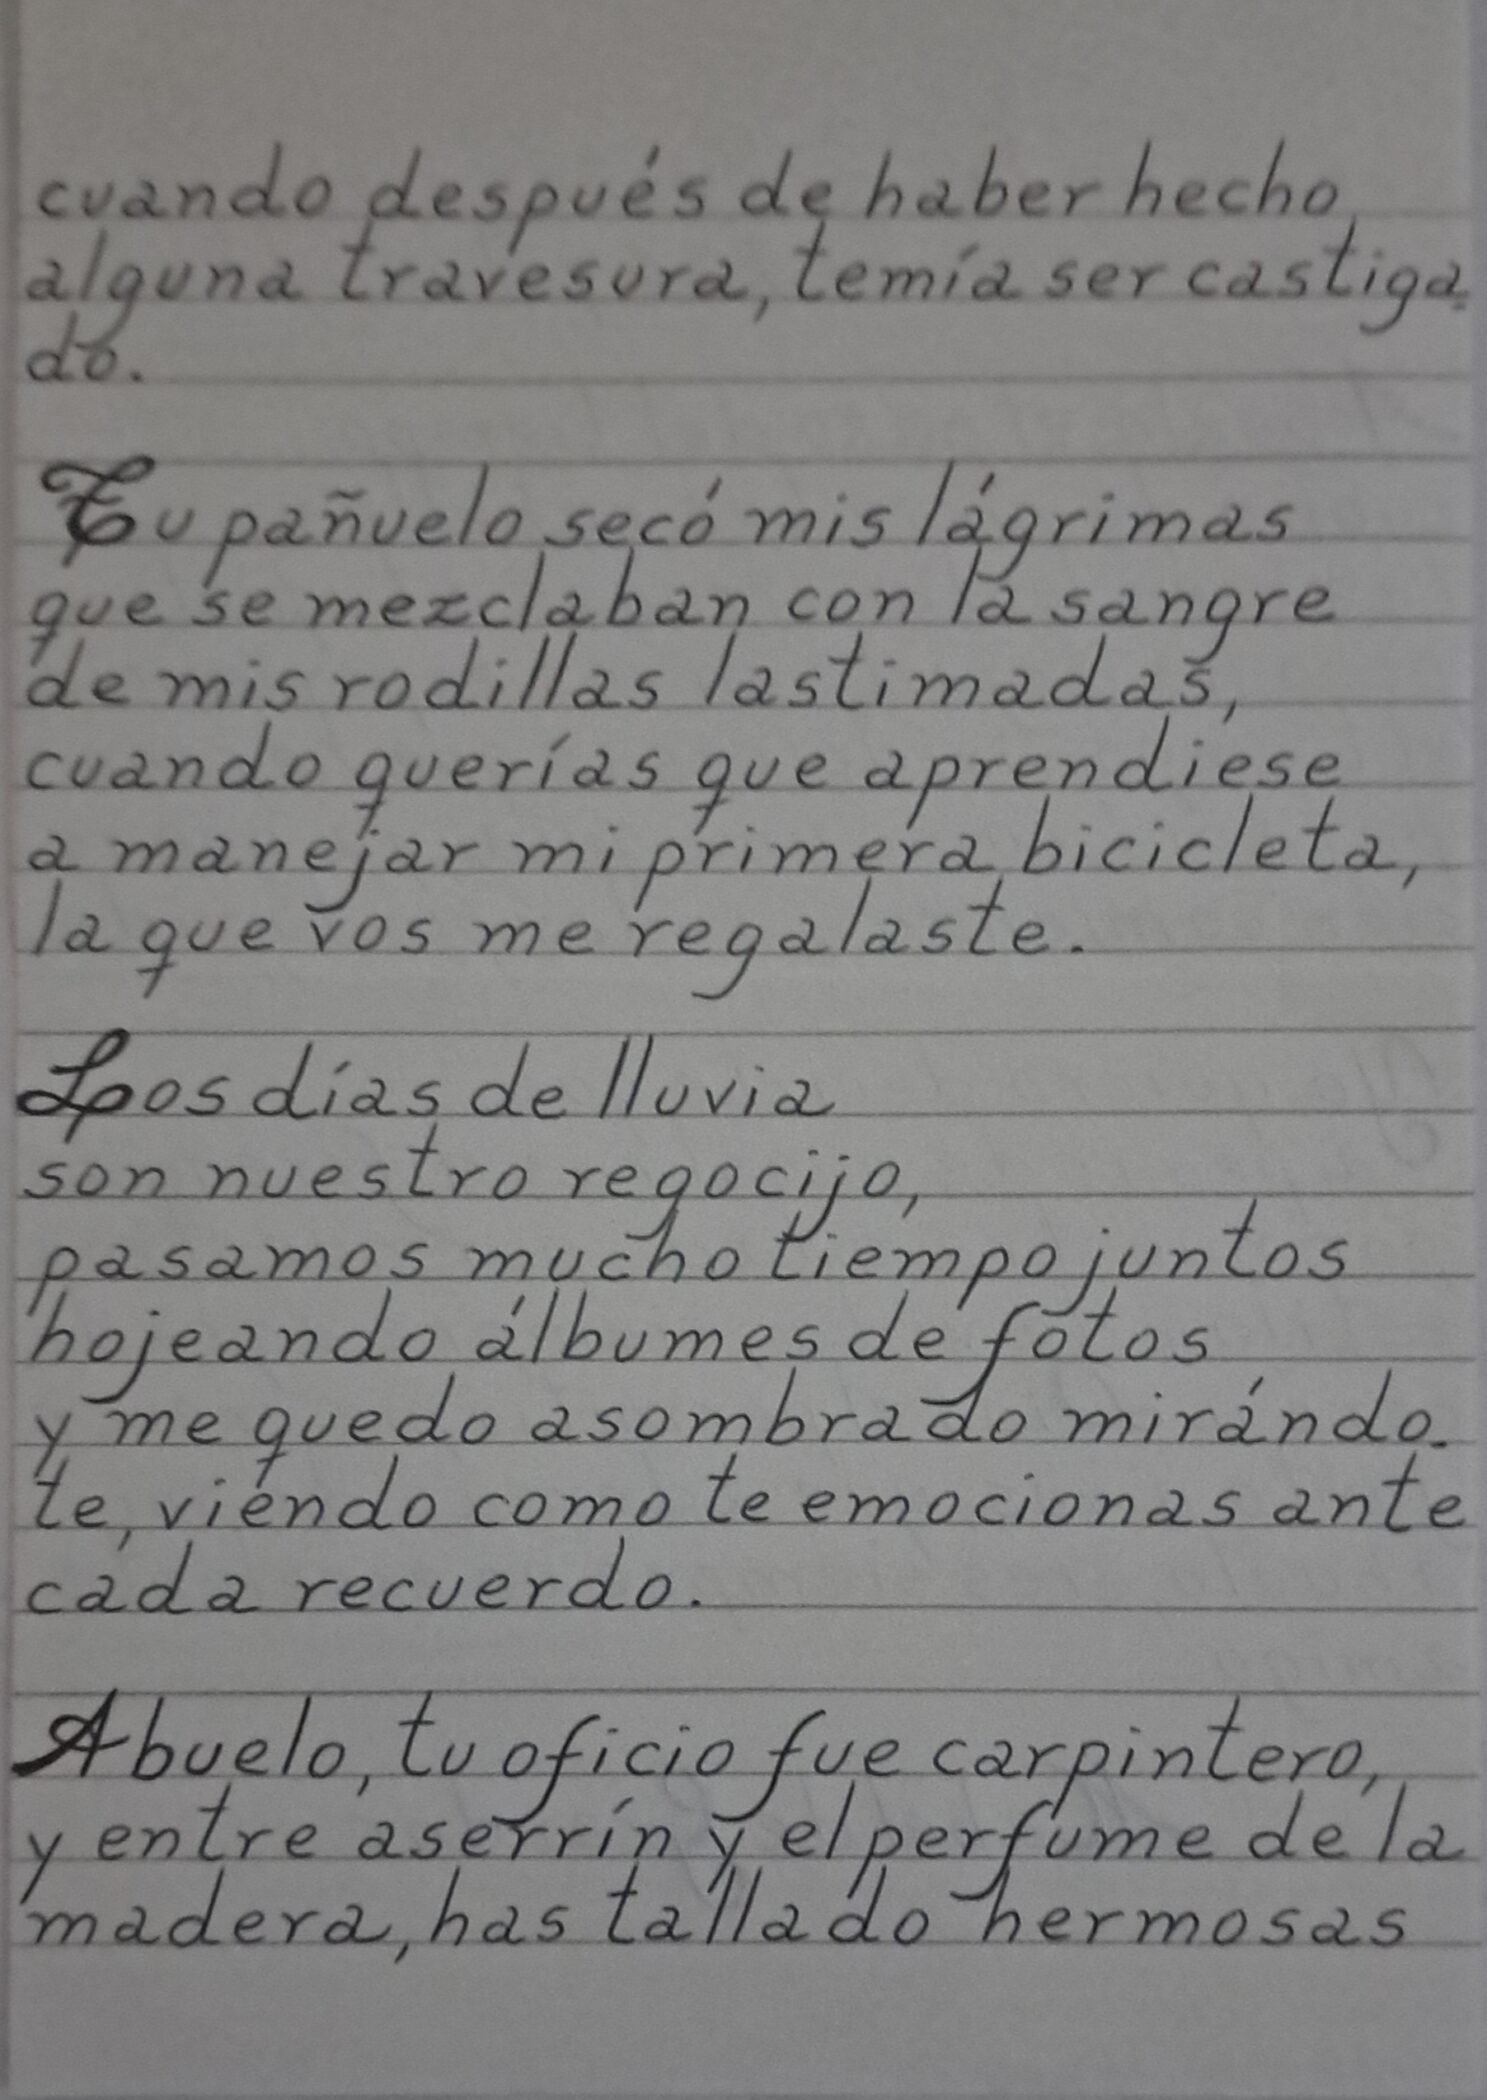 cuando después de haber hecho
alguna travesura, temía ser castiga-
do.
Tu pañuelo secó mis lágrimas
que se mezclaban con la sangre
de mis rodillas lastimadas,
cuando querías que aprendiese
a manejar mi primera bicicleta,
la que vos me regalaste.
Los días de lluvia
son nuestro regocijo,
pasamos mucho tiempo juntos
hojeando álbumes de fotos
y me quedo asombrado mirándo-
te, viendo como te emocionas ante
cada recuerdo.
Abuelo, tu oficio fue carpintero,
y entre aserrín y el perfume de la
madera, has tallado hermosas